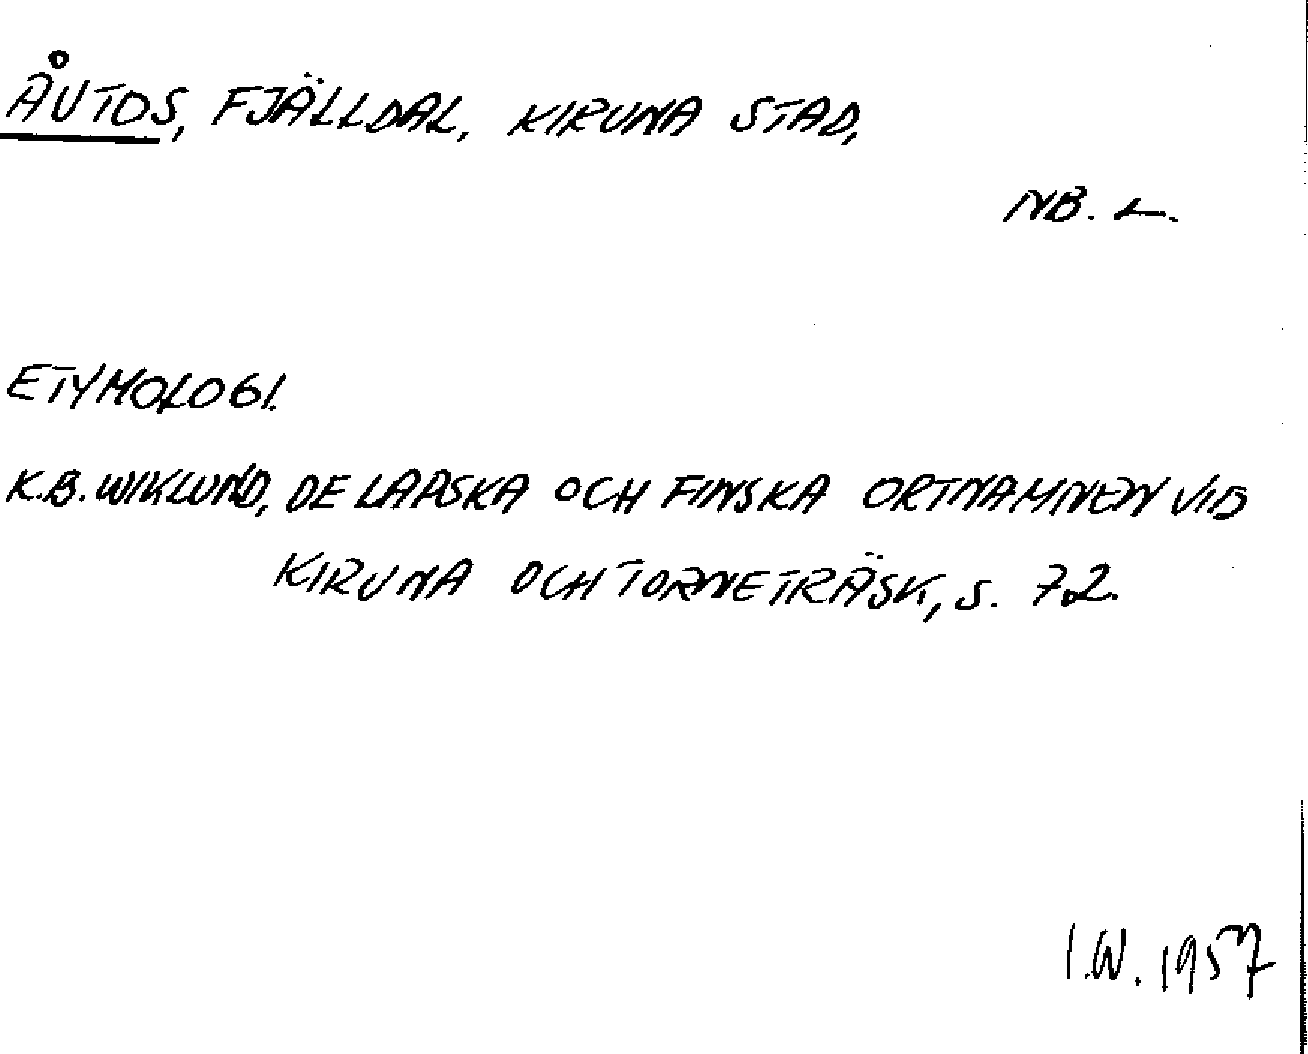 ÅUTOS, FJÄLLDAL, KIRUNA STAD,
NB. L.
ETYMOLOGI.
K.B. WIKLUND, DE LAPSKA OCH FINSKA ORTNAMNEN VID
KIRUNA OCH TORNETRÄSK, S. 72.
I.W. 1957